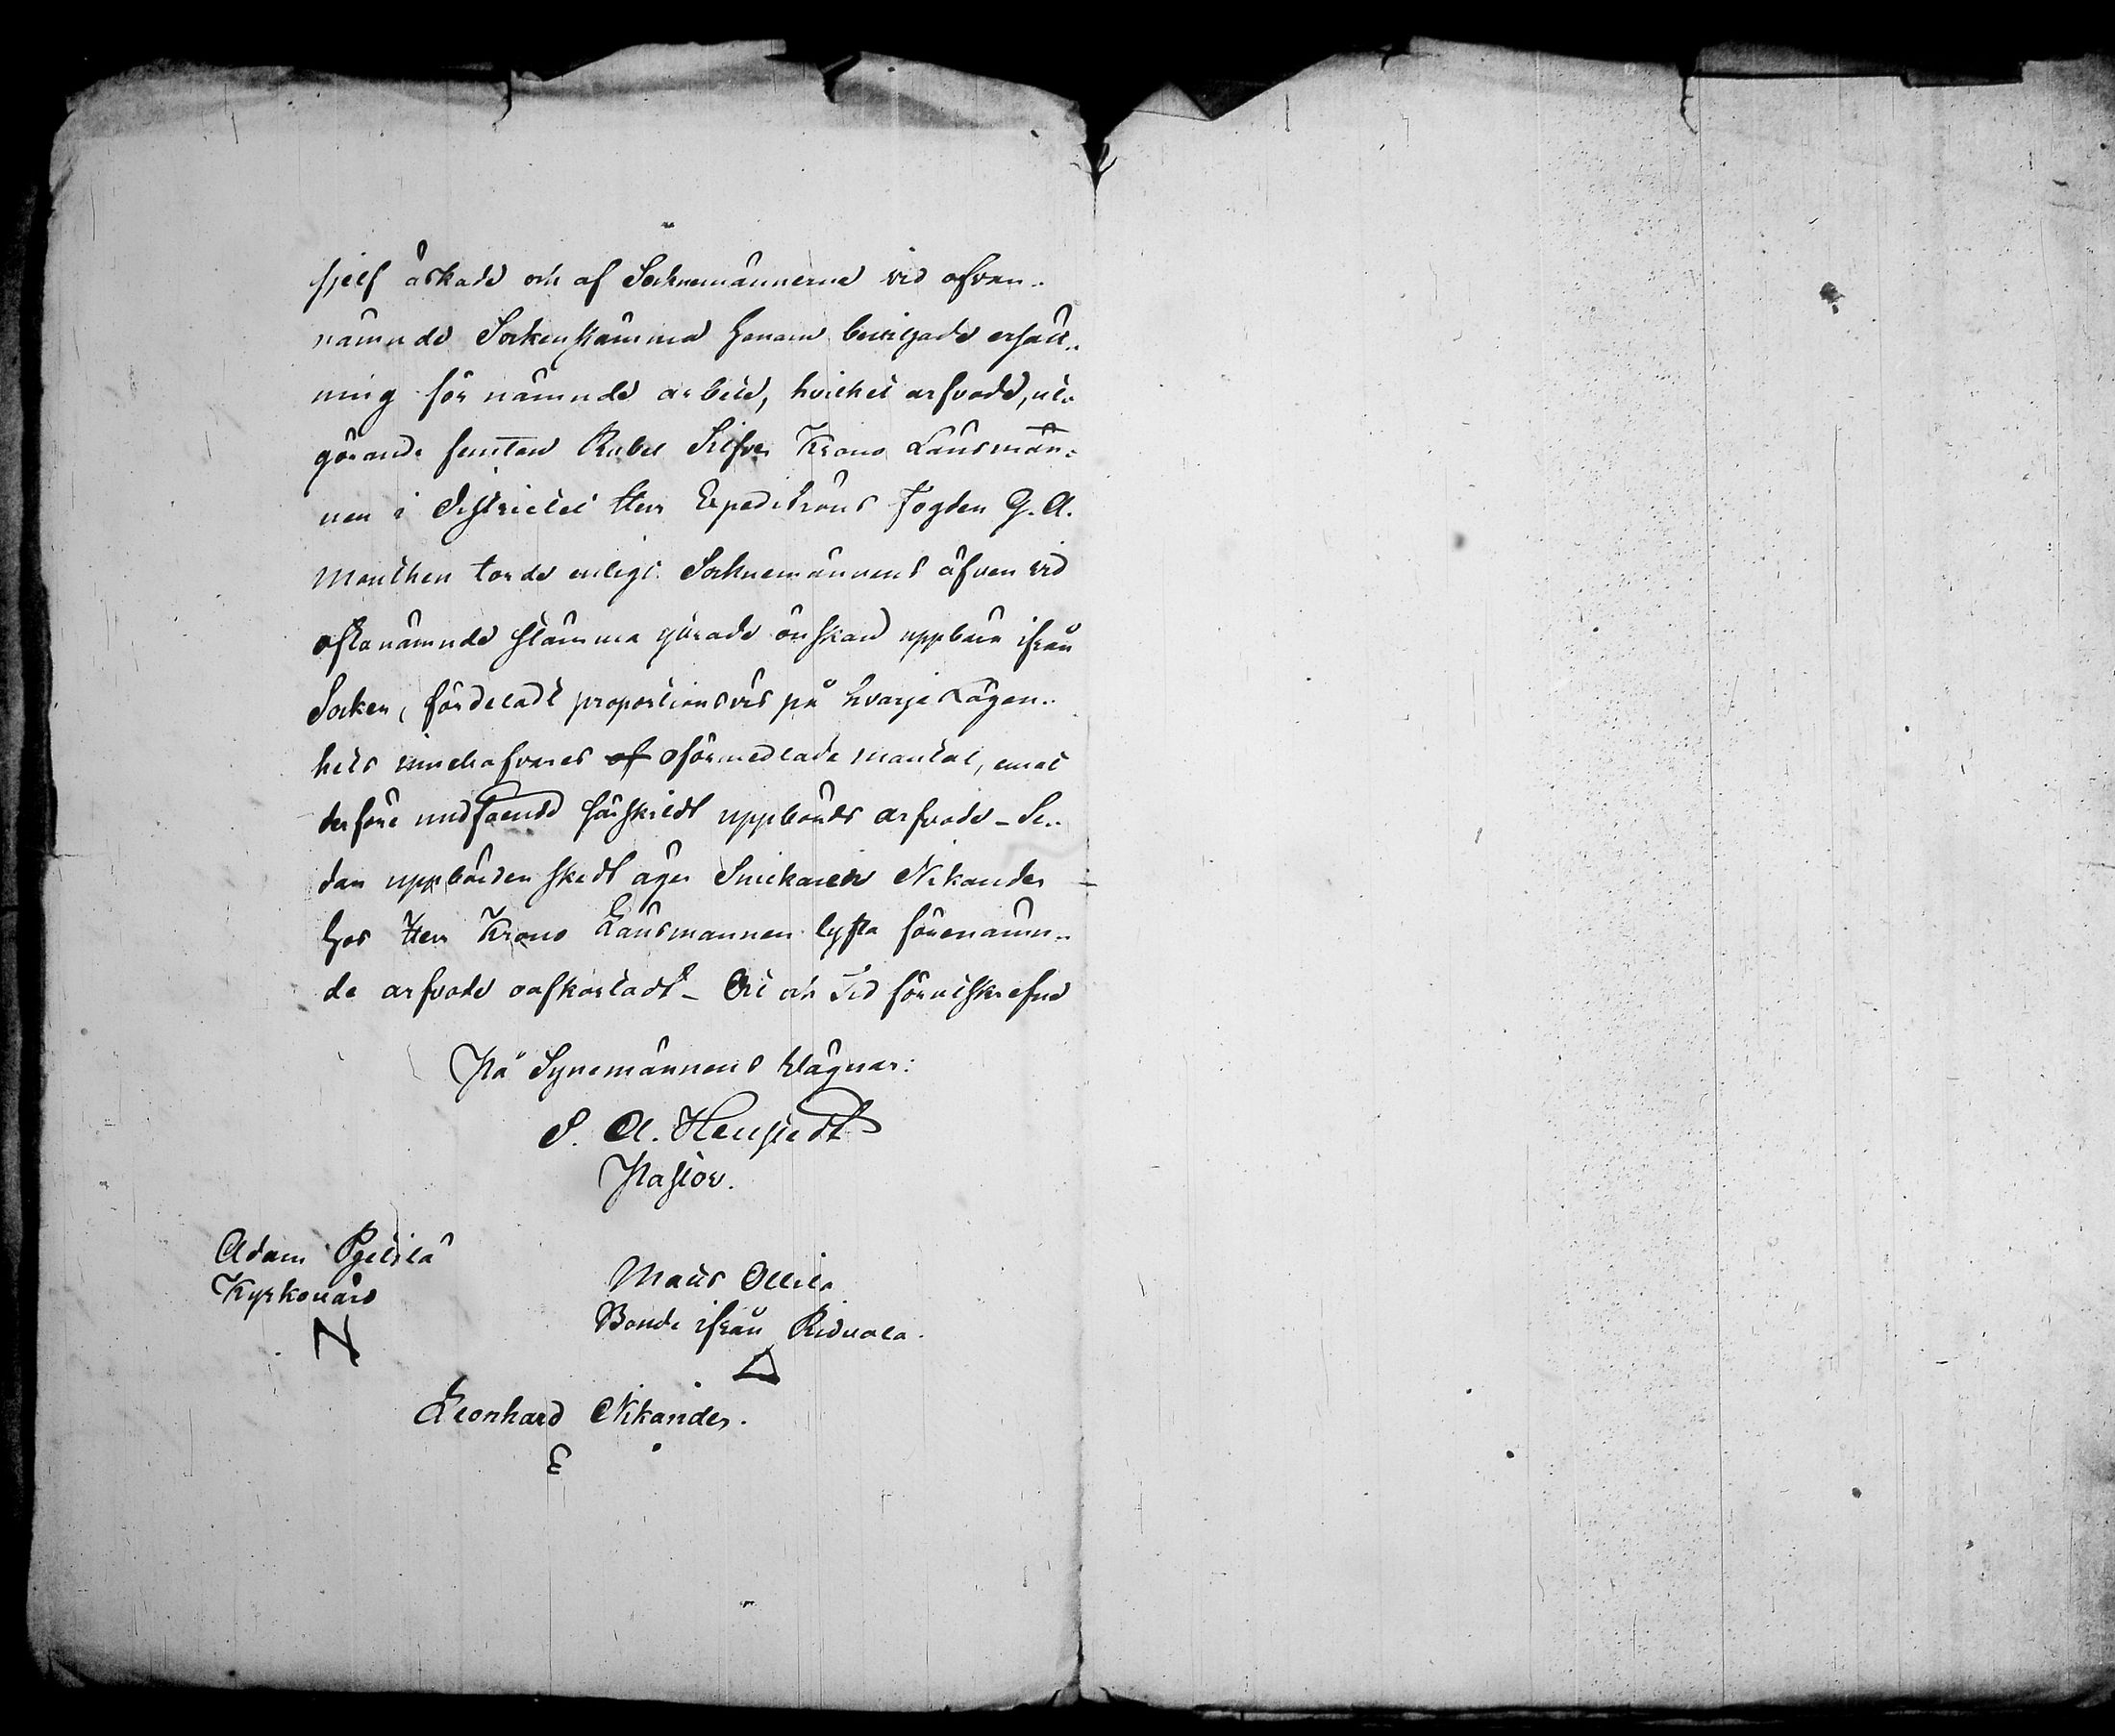 sjelf äskade och af Socknemännerne vid ofvan-
nämnde Sockenstämma honom beviljade ersätt-
ning för nämnde arbete, hvilket arfvode, ut-
görande femton Rubel Silfver Krono Länsman-
nen i Districtet Herr Expeditions Fogden G. A.
Monthen torde enligt Socknemännens äfven vid
oftanämnde stämma gjorade önskan uppbära ifrån
Socken, fördeladt proportionsvis på hvarje Lägen-
hets innehafvares of oförmedlade mantal, emot
derföre undfående särskildt uppbörds arfvode - Se-
dan uppbörden skedt äger Snickaren Nikander
hos Herr Krono Länsmannen lyfta förenämn-
de arfvode oafkortadt - Ort och Tid förutskrefne
På Synemännens vägnar:
S. A. Hengstedt
Pastor.
Adam Pjelilä
Kyrkovärd
N
Matts Ollila
Bonde ifrån Ridvala.
Leonhard Nikander.